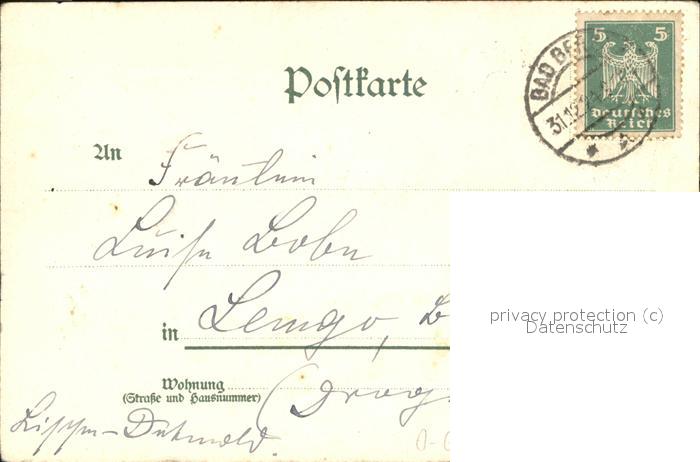 5 5
Deutsches
Reich
BAD BE
31.12.24
Postkarte
An
Fräulein
Luise Bobe
in Lemgo, L
privacy protection (c)
Datenschutz
Wohnung
(Straße und Hausnummer)
(Drog
Lippe-Detmold.